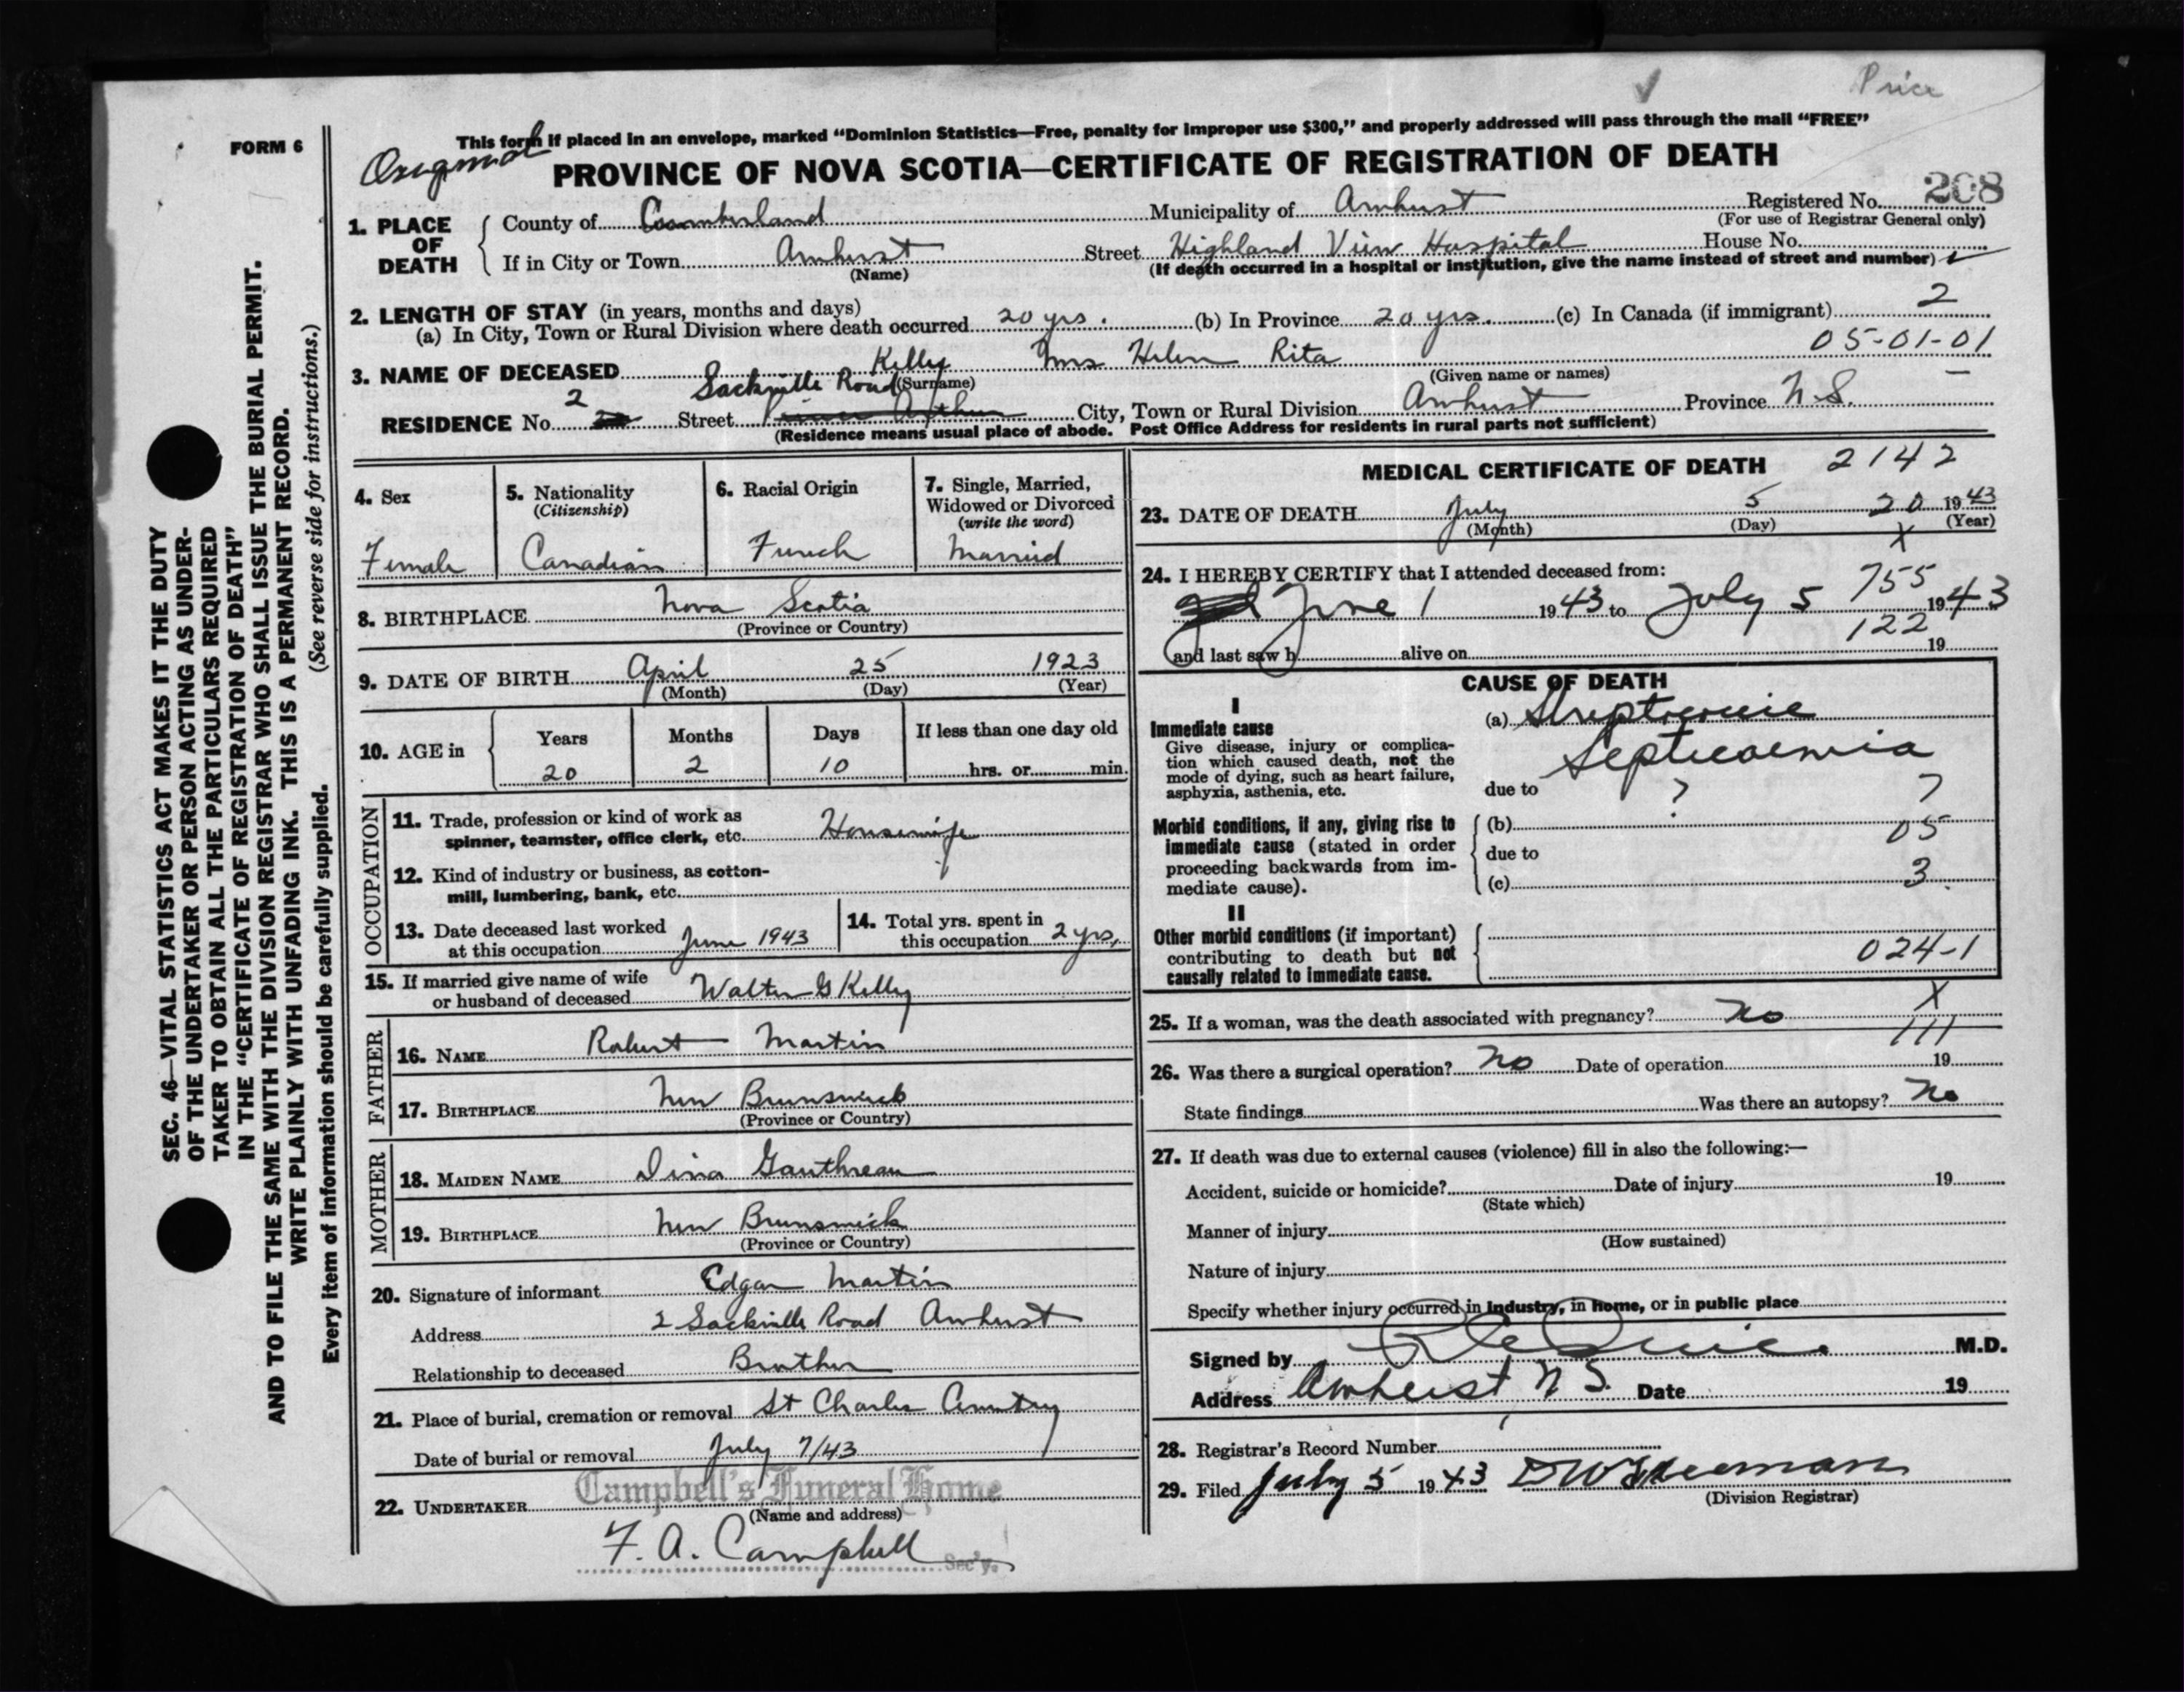 Price
FORM 6
This form if placed in an envelope, marked "Dominion Statistics—Free, penalty for improper use $300," and properly addressed will pass through the mail "FREE"
Original
PROVINCE OF NOVA SCOTIA—CERTIFICATE OF REGISTRATION OF DEATH
208
1. PLACE OF DEATH
County of Cumberland Municipality of Amherst Registered No.
(For use of Registrar General only)
If in City or Town Amherst Street Highland View Hospital House No.
(Name) (If death occurred in a hospital or institution, give the name instead of street and number)
2. LENGTH OF STAY (in years, months and days)
(a) In City, Town or Rural Division where death occurred 20 yrs. (b) In Province 20 yrs. (c) In Canada (if immigrant) 2
05-01-01
3. NAME OF DECEASED Kelly Mrs Helen Rita
(Surname) (Given name or names)
Sackville Road
RESIDENCE No. 2 Street Prince Arthur City, Town or Rural Division Amherst Province N.S.
(Residence means usual place of abode. Post Office Address for residents in rural parts not sufficient)
4. Sex
Female
5. Nationality
(Citizenship)
Canadian
6. Racial Origin
French
7. Single, Married, Widowed or Divorced
(write the word)
Married
8. BIRTHPLACE Nova Scotia
(Province or Country)
9. DATE OF BIRTH April 25 1923
(Month) (Day) (Year)
10. AGE in Years Months Days If less than one day old
20 2 10 hrs. or min.
OCCUPATION
11. Trade, profession or kind of work as
spinner, teamster, office clerk, etc. Housewife
12. Kind of industry or business, as cotton-
mill, lumbering, bank, etc.
13. Date deceased last worked
at this occupation June 1943
14. Total yrs. spent in
this occupation 2 yrs.
15. If married give name of wife
or husband of deceased Walter G Kelly
FATHER
16. NAME Robert Martin
17. BIRTHPLACE New Brunswick
(Province or Country)
MOTHER
18. MAIDEN NAME Dina Gauthreau
19. BIRTHPLACE New Brunswick
(Province or Country)
20. Signature of informant Edgar Martin
Address 2 Sackville Road Amherst
Relationship to deceased Brother
21. Place of burial, cremation or removal St Charles Cemetry
Date of burial or removal July 7/43
22. UNDERTAKER Campbell's Funeral Home
(Name and address)
F. A. Campbell Sec'y.
MEDICAL CERTIFICATE OF DEATH 2142
23. DATE OF DEATH July 5 20 1943
(Month) (Day) (Year)
X
24. I HEREBY CERTIFY that I attended deceased from:
755
June 1 1943 to July 5 1943
122
and last saw h alive on 19
CAUSE OF DEATH
I
Immediate cause
Give disease, injury or complica-
tion which caused death, not the
mode of dying, such as heart failure,
asphyxia, asthenia, etc.
(a) Streptococcic
Septicaemia
due to ? 7
Morbid conditions, if any, giving rise to
immediate cause (stated in order
proceeding backwards from im-
mediate cause).
(b) 05
due to
(c) 3
II
Other morbid conditions (if important)
contributing to death but not
causally related to immediate cause.
024-1
X
25. If a woman, was the death associated with pregnancy? No
111
26. Was there a surgical operation? No Date of operation 19
State findings Was there an autopsy? No
27. If death was due to external causes (violence) fill in also the following:—
Accident, suicide or homicide? Date of injury 19
(State which)
Manner of injury
(How sustained)
Nature of injury
Specify whether injury occurred in industry, in home, or in public place
Signed by M.D.
Address Amherst N S. Date 19
28. Registrar's Record Number
29. Filed July 5 1943
(Division Registrar)
SEC. 46—VITAL STATISTICS ACT MAKES IT THE DUTY
OF THE UNDERTAKER OR PERSON ACTING AS UNDER-
TAKER TO OBTAIN ALL THE PARTICULARS REQUIRED
IN THE "CERTIFICATE OF REGISTRATION OF DEATH"
AND TO FILE THE SAME WITH THE DIVISION REGISTRAR WHO SHALL ISSUE THE BURIAL PERMIT.
WRITE PLAINLY WITH UNFADING INK. THIS IS A PERMANENT RECORD.
(See reverse side for instructions.)
Every item of information should be carefully supplied.